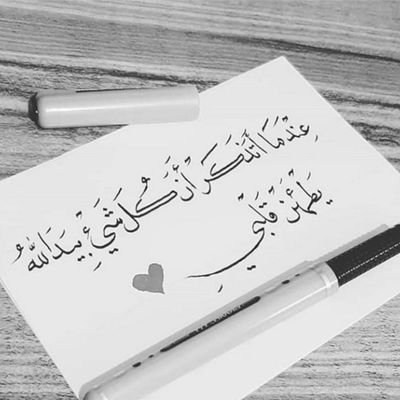 عِندَمَا أتَذَكَر أَنَ كُل شَيْءٍ بِيَدِ اللّٰهُ
يَطمَئِن قَلبِي